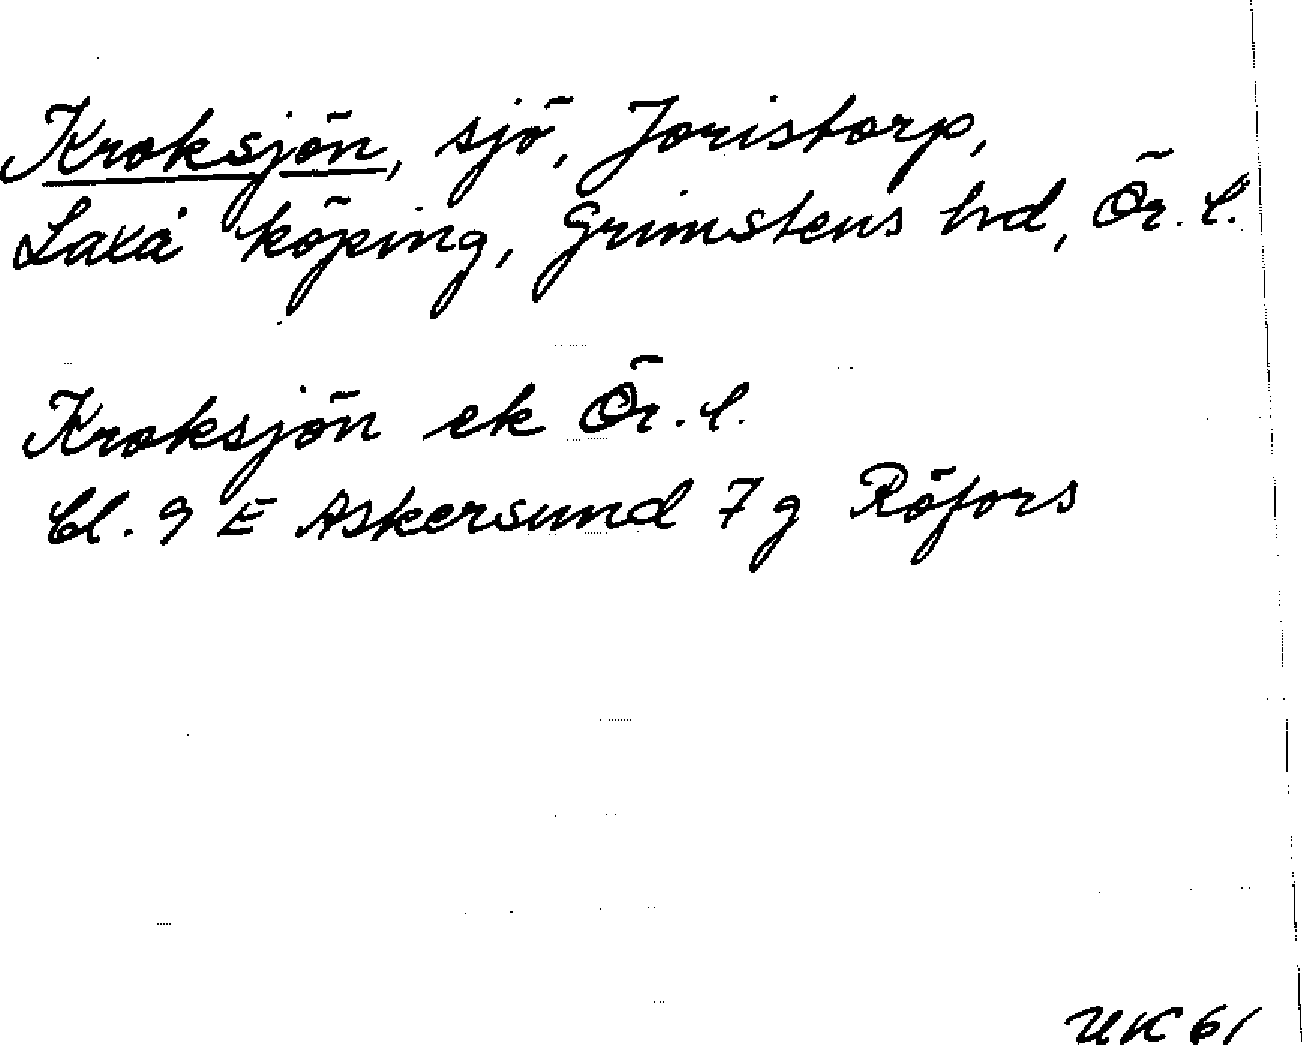 Kroksjön, sjö, Joristorp,
Laxå köping, Grimstens hd, Ör. l.
Kroksjön ek Ör. l.
bl. 9 E Askersund 7 g Röfors
UK 61